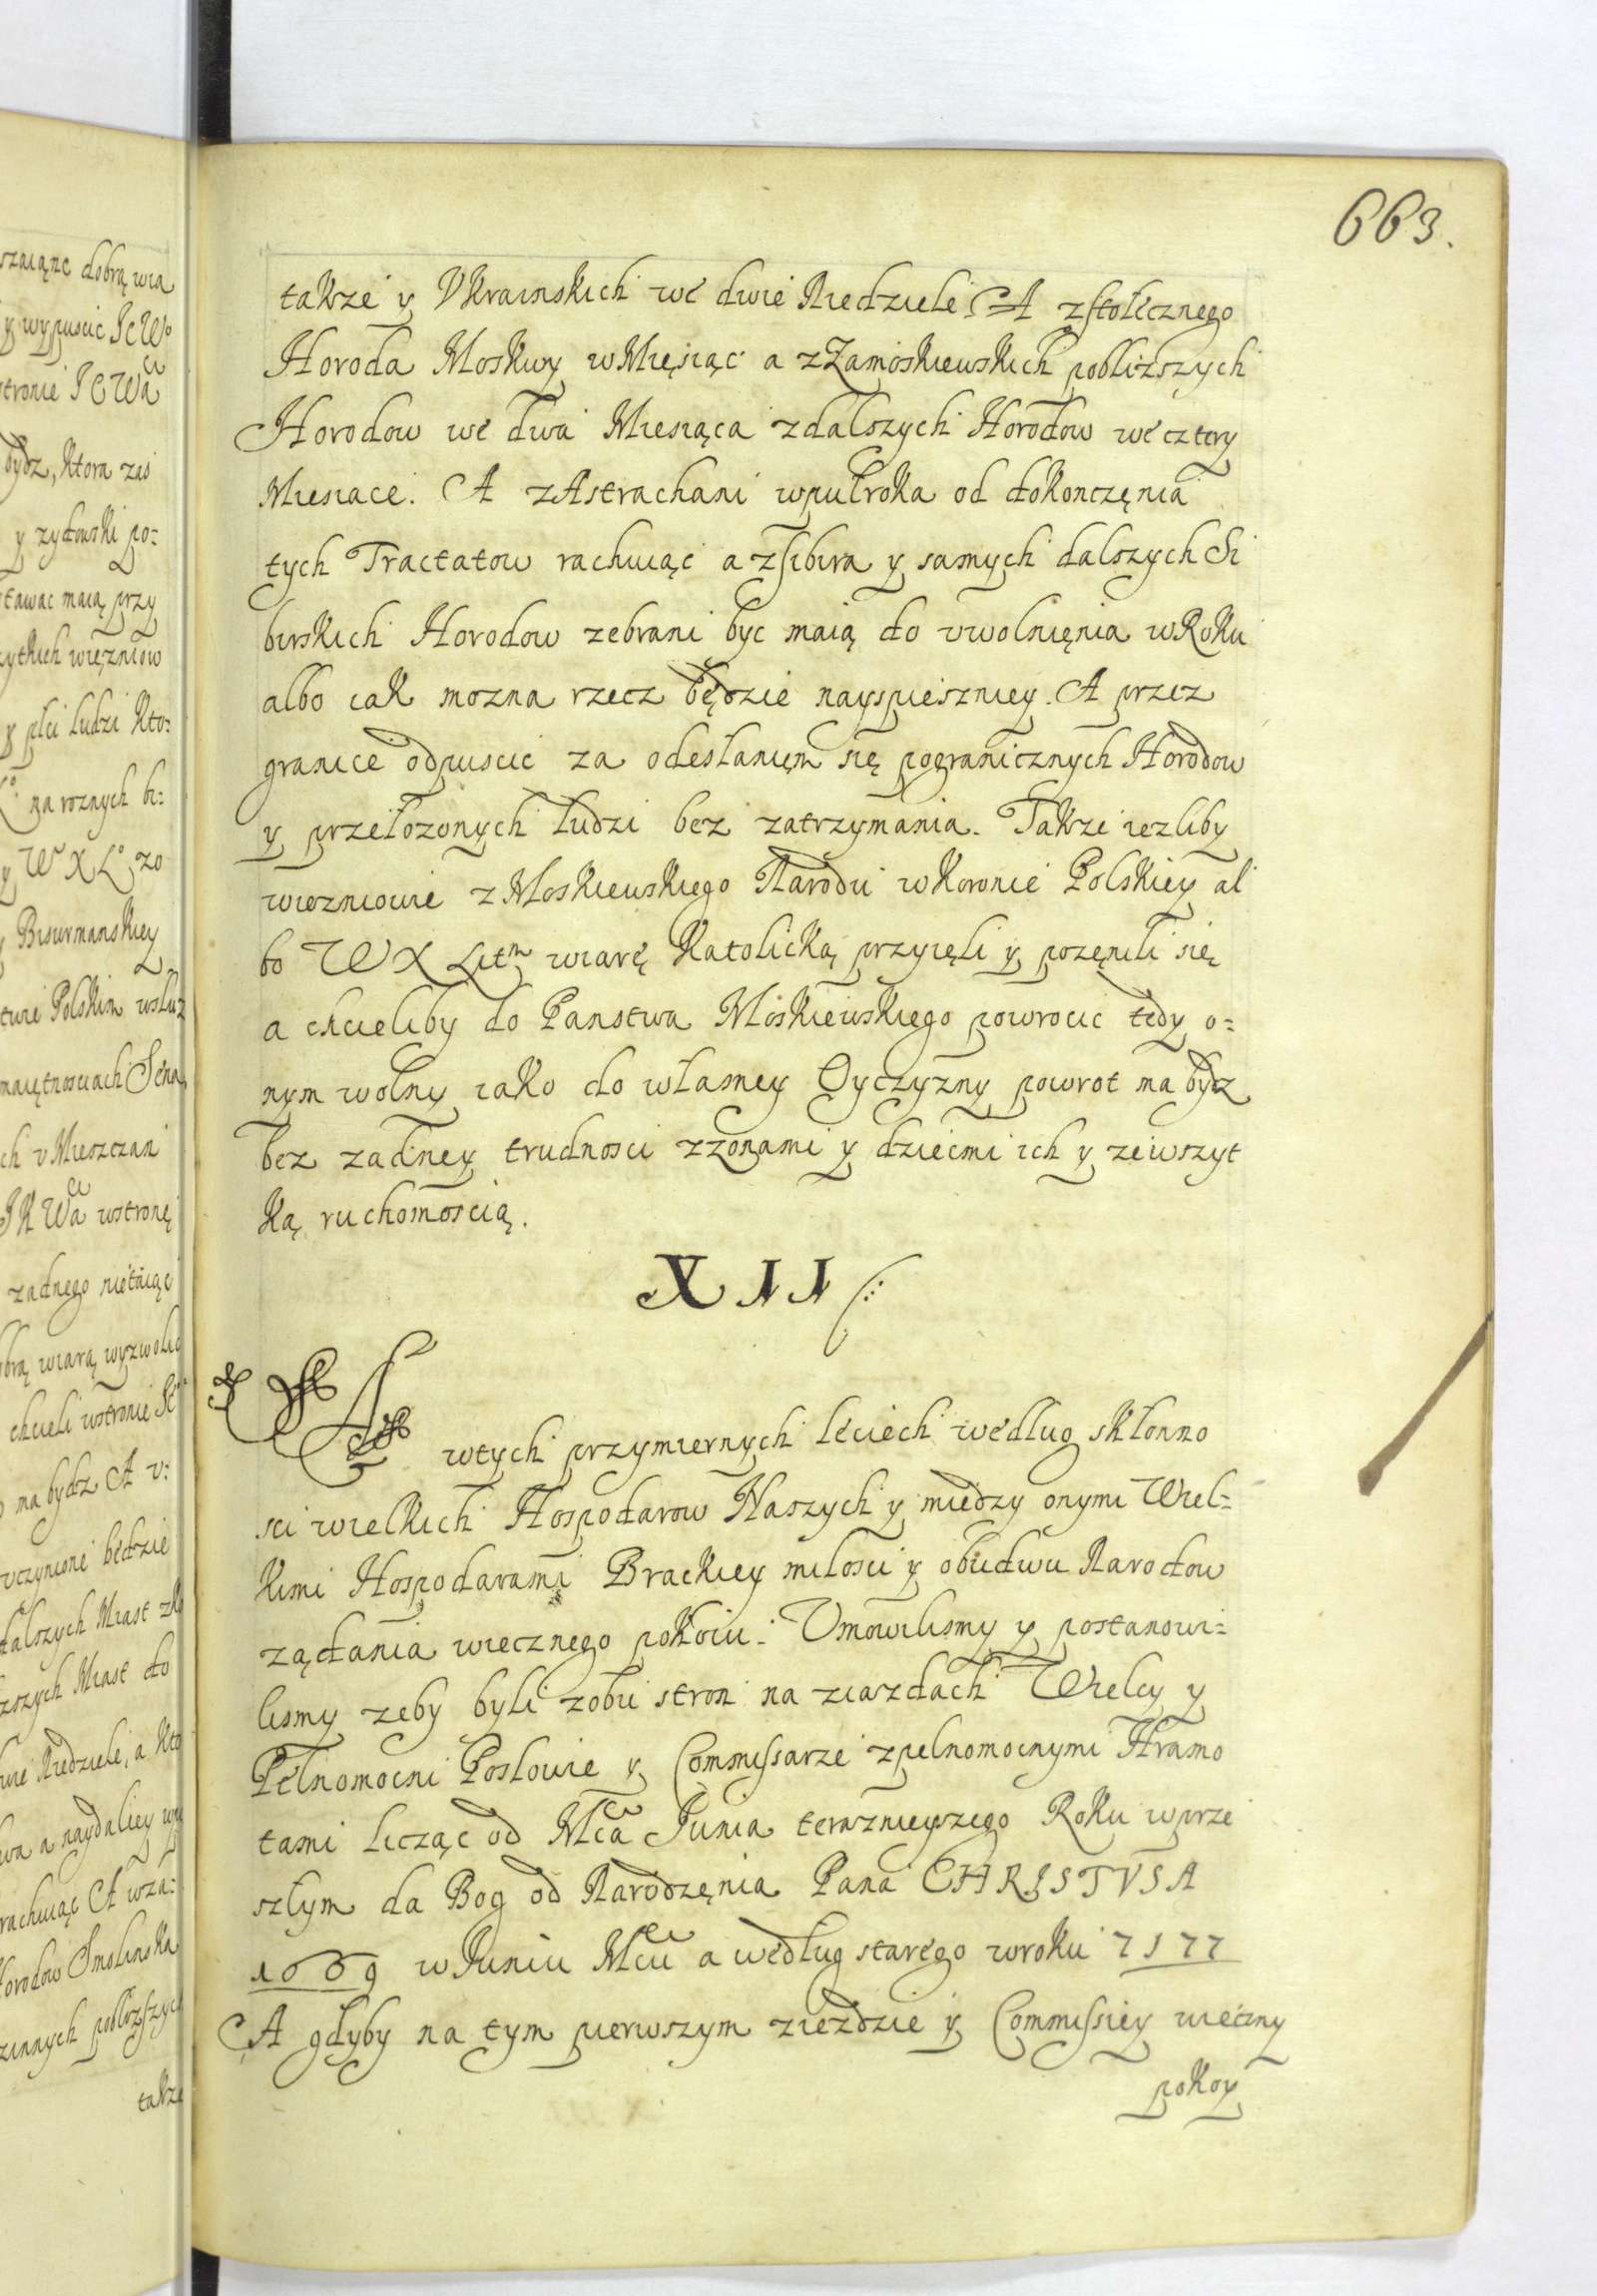 663.
takze y Vkrainskich we dwie Niedziele. A zstołecznego
Horoda Moskwy wMięsiąc a zZamoskiewskich pobliższych
Horodow we dwa Miesiąca zdalszych Horodow we cztery
Miesiace. A zAstrachani wpułroka od dokonczęnia
tych Tractatow rachuiąc a zsibira y samych dalszych Si
birskich Horodow zebrani byc maią do vwolnięnia wRoku
albo iak mozna rzecz będzie nayspieszniey. A przez
granice odpuscic za odesłanięm się pogranicznych Horodow
y przełozonych ludzi bez zatrzymania. Takze iezliby
wiezniowie zMoskiewskiego Narodu wKoronie Polskiey al
bo WX Litm wiarę Katolicką przyięli y pozęnili się
a chcieliby do Panstwa Moskiewskiego powrocic tedy o=
nym wolny iako do własney Oyczyzny powrot ma bydz
bez zadney trudnosci zzonami y dziecmi ich y zewszyt
ką ruchomoscią.
XII
A wtych przymiernych leciech według skłonno
sci wielkich Hospodarow Naszych y miedzy onymi Wiel=
kimi Hospodarami Brackiey milosci y obudwu Narodow
ządania wiecznego pokoiu. Vmowilismy y postanowi=
lismy zeby byli zobu stron na ziazdach Wielcy y
Pełnomocni Posłowie y Commissarze zpełnomocnymi Hramo
tami licząc od Mca Junia teraznieyszego Roku wprze
szłym da Bog od Narodzęnia Pana CHRISTVSA
1669 wJuniu Mcu a według starego wroku 7177
A gdyby na tym pierwszym ziezdzie y Commissiey wieczny
pokoy
szaiąnc dobrą wia
y wypuscic
bydz, ktora zas
y zydowski po=
tawac maią przy
zytkich więzniow
y plci ludzi kto=
na roznych bi=
y WXLo zo
Bisurmanskiey
twie Polskim wsłuz
maiętnosciach Sena
ch v Mieszczan
JK Wa wstronę
zadnego nietaiąc
obrą wiarą wyzwolic
chcieli wstronie
ma bydz A v=
vczynione będzie
dalszych Miast
szych Miast do
wie Niedziele, a kto
wa a naydaliey
rachuiąc A wza=
Horodow Smolenska
zinnych pobliższych
takze